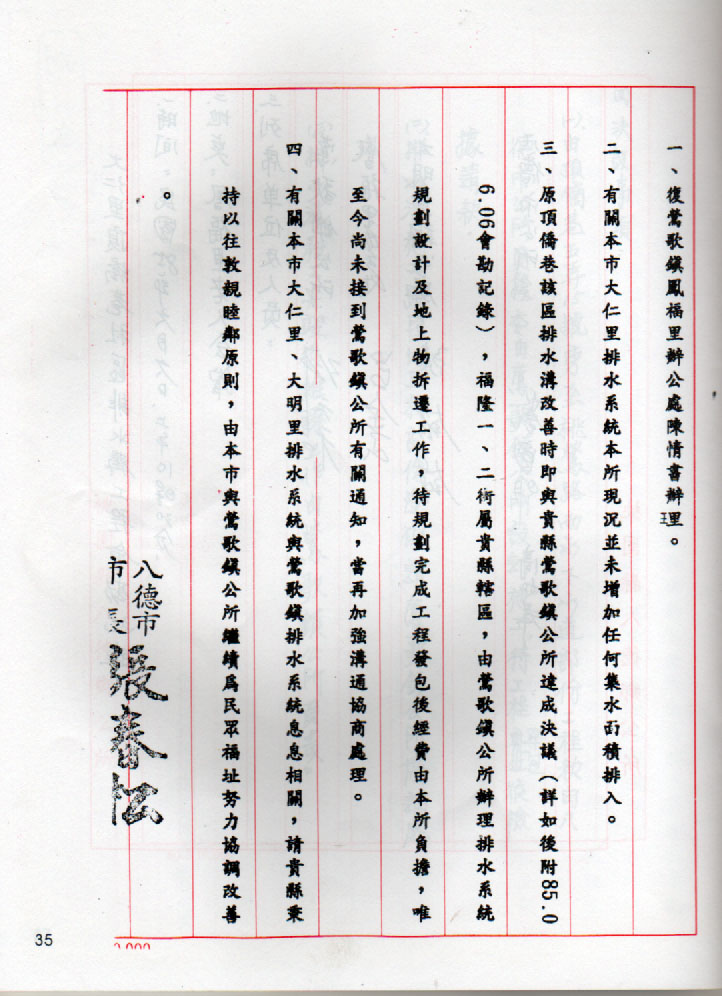 一、復鶯歌鎮鳳福里辦公處陳情書辦理。
二、有關本市大仁里排水系統本所現況並未增加任何集水面積排入。
三、原頂僑巷該區排水溝改善時即與貴縣鶯歌鎮公所達成決議(詳如後附85.0
6.06會勘記錄),福隆一、二街屬貴縣轄區,由鶯歌鎮公所辦理排水系統
規劃設計及地上物拆遷工作,待規劃完成工程發包後經費由本所負擔,唯
至今尚未接到鶯歌鎮公所有關通知,當再加強溝通協商處理。
四、有關本市大仁里、大明里排水系統與鶯歌鎮排水系統息息相關,請貴縣秉
持以往敦親睦鄰原則,由本市與鶯歌鎮公所繼續為民眾福址努力協調改善
。
八德市
市長張春松
35